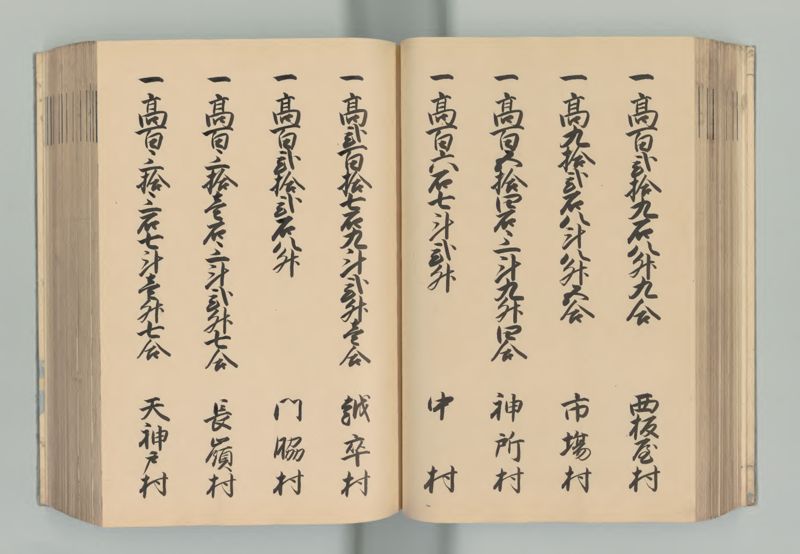 一高百弐拾九石八升九合 西板屋村
一高九拾弐石八斗八升六合 市場村
一高百六拾四石三斗九升四合 神所村
一高百六石七斗弐升 中村
一高弐百拾七石九斗弐升壱合 越卒村
一高百弐拾弐石八升 門脇村
一高百三拾壱石三斗弐升七合 長嶺村
一高百三拾三石七斗壱升七合 天神戸村